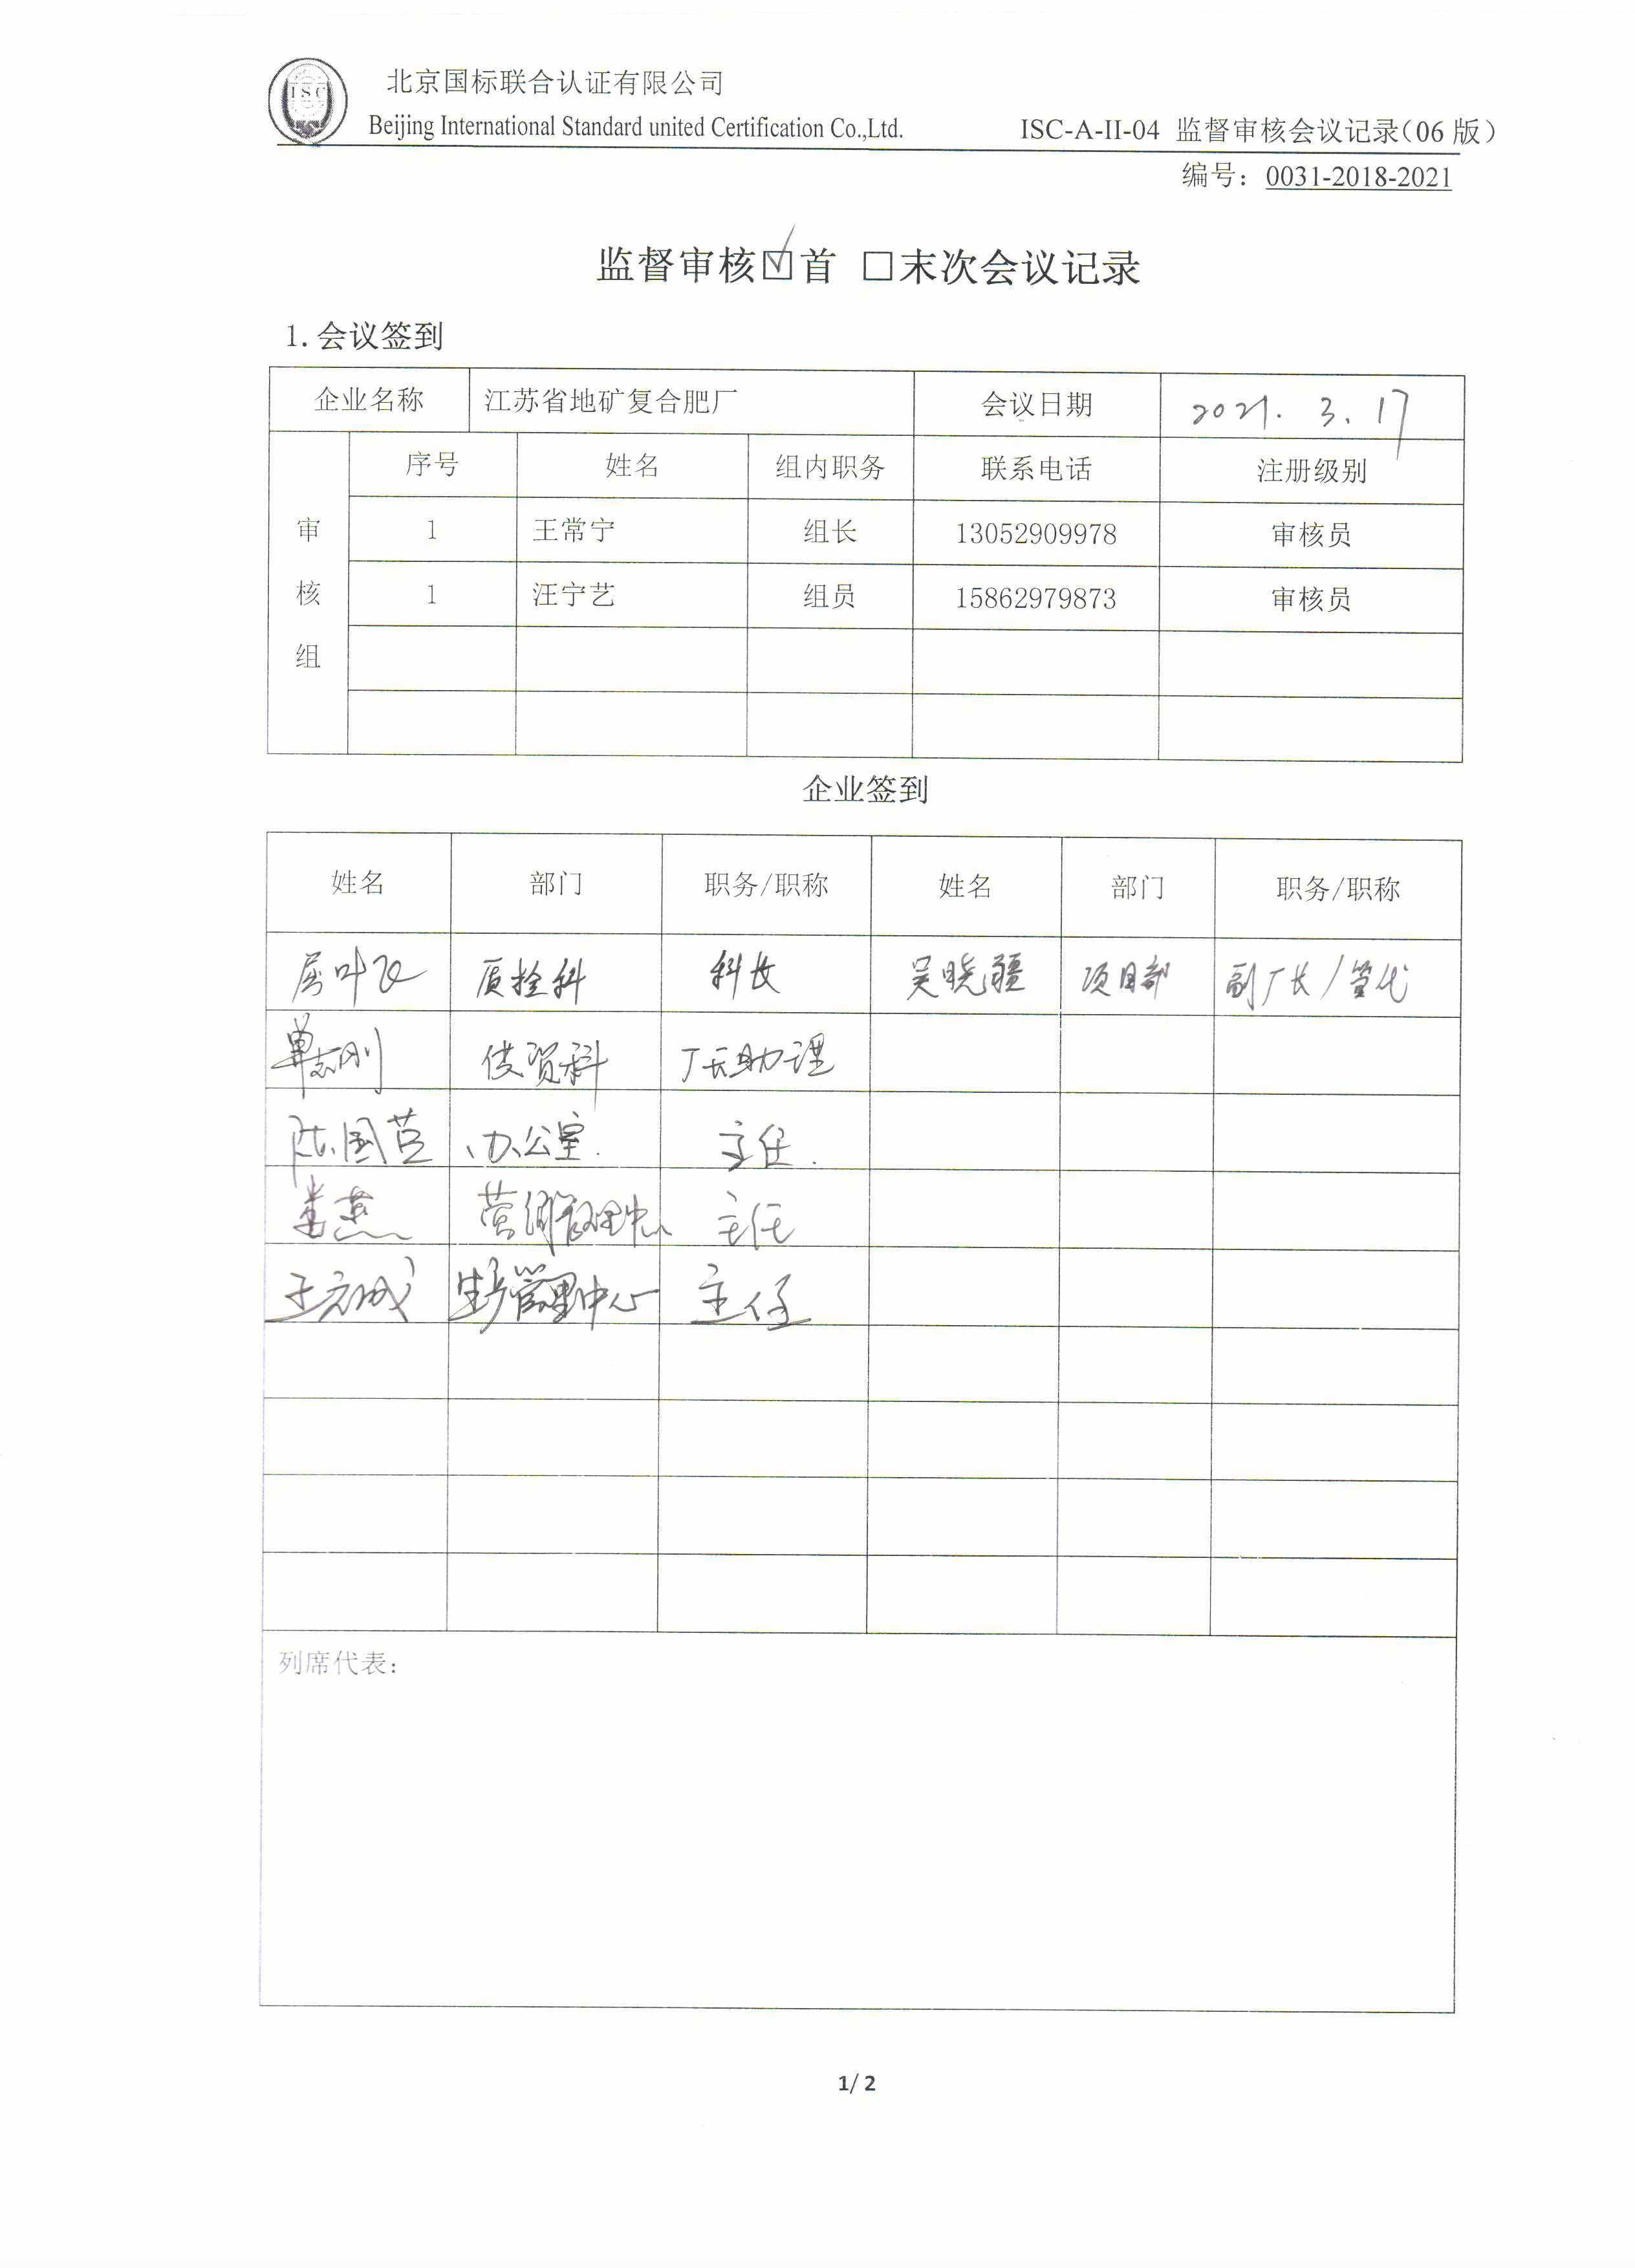 ISC
北京国标联合认证有限公司
Beijing International Standard united Certification Co.,Ltd.
ISC-A-II-04 监督审核会议记录(06 版)
编号：0031-2018-2021
监督审核☑首 □末次会议记录
1.会议签到
企业名称 江苏省地矿复合肥厂 会议日期 2021.3.17
审核组
序号 姓名 组内职务 联系电话 注册级别
1 王常宁 组长 13052909978 审核员
1 汪宁艺 组员 15862979873 审核员
企业签到
姓名 部门 职务/职称 姓名 部门 职务/职称
质检科 科长 吴晓疆 项目部 副厂长/管代
单志刚 供贸科 厂长助理
办公室 主任
娄燕 营销管理中心 主任
生产管理中心 主任
列席代表：
1/ 2